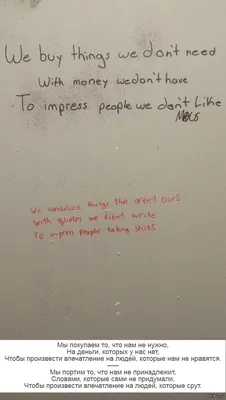 We buy things we don't need
With money we don't have
To impress people we don't Like
We vandalize things that aren't ours
With quotes we didn't write
To impress people taking shits
Мы покупаем то, что нам не нужно,
На деньги, которых у нас нет,
Чтобы произвести впечатление на людей, которые нам не нравятся.
Мы портим то, что нам не принадлежит,
Словами, которые сами не придумали,
Чтобы произвести впечатление на людей, которые срут.